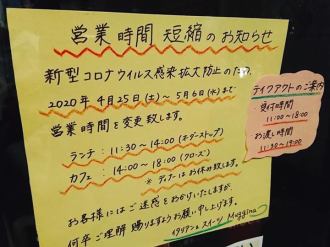 営業時間 短縮のお知らせ
新型コロナウイルス感染拡大防止のため、
2020年4月25日(土)~5月6日(水)まで
営業時間を変更致します。
ランチ:11:30~14:00(オーダーストップ)
カフェ:14:00~18:00(クローズ)
*ディナーはお休み致します。
お客様にはご迷惑をおかけいたしますが、
何卒ご理解賜りますようお願い申し上げます。
イタリアン&スイーツ
テイクアウトのご案内
・受付時間
11:00~18:00
・お渡し時間
11:30~19:00